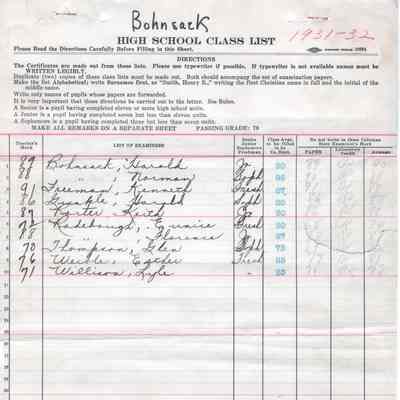 Bohnsack
HIGH SCHOOL CLASS LIST
1931-32
Please Read the Directions Carefully Before Filling in this Sheet.
DIRECTIONS
The Certificates are made out from these lists. Please use typewriter if possible. If typewriter is not available names must be
WRITTEN LEGIBLY.
Duplicate (two) copies of these class lists must be made out. Both should accompany the set of examination papers.
Make the list Alphabetical; write Surnames first, as "Smith, Henry R.," writing the first Christian name in full and the initial of the
middle name.
Write only names of pupils whose papers are forwarded.
It is very important that these directions be carried out to the letter. See Rules.
A Senior is a pupil having completed eleven or more high school units.
A Junior is a pupil having completed seven but less than eleven units.
A Sophomore is a pupil having completed three but less than seven units.
MAKE ALL REMARKS ON A SEPARATE SHEET PASSING GRADE: 70
Teacher's Mark
LIST OF EXAMINEES
Senior Junior Sophomore Freshman
Class Aver. to be filled in by Co. Supt.
Do not write in these Columns
State Examiner's Mark
PAPER
Laboratory Credit
Average
89 Bohnsack, Harold Jr 90
88 " Norman Soph
91 Freeman, Kenneth Fresh
86 Harold Soph
87 Porter Keith
73 Radebaugh, Eunice
78 " Florence
70 Thompson, Glen Soph 75
76 Weible, Esther Fresh
71 Willison, Lyle "